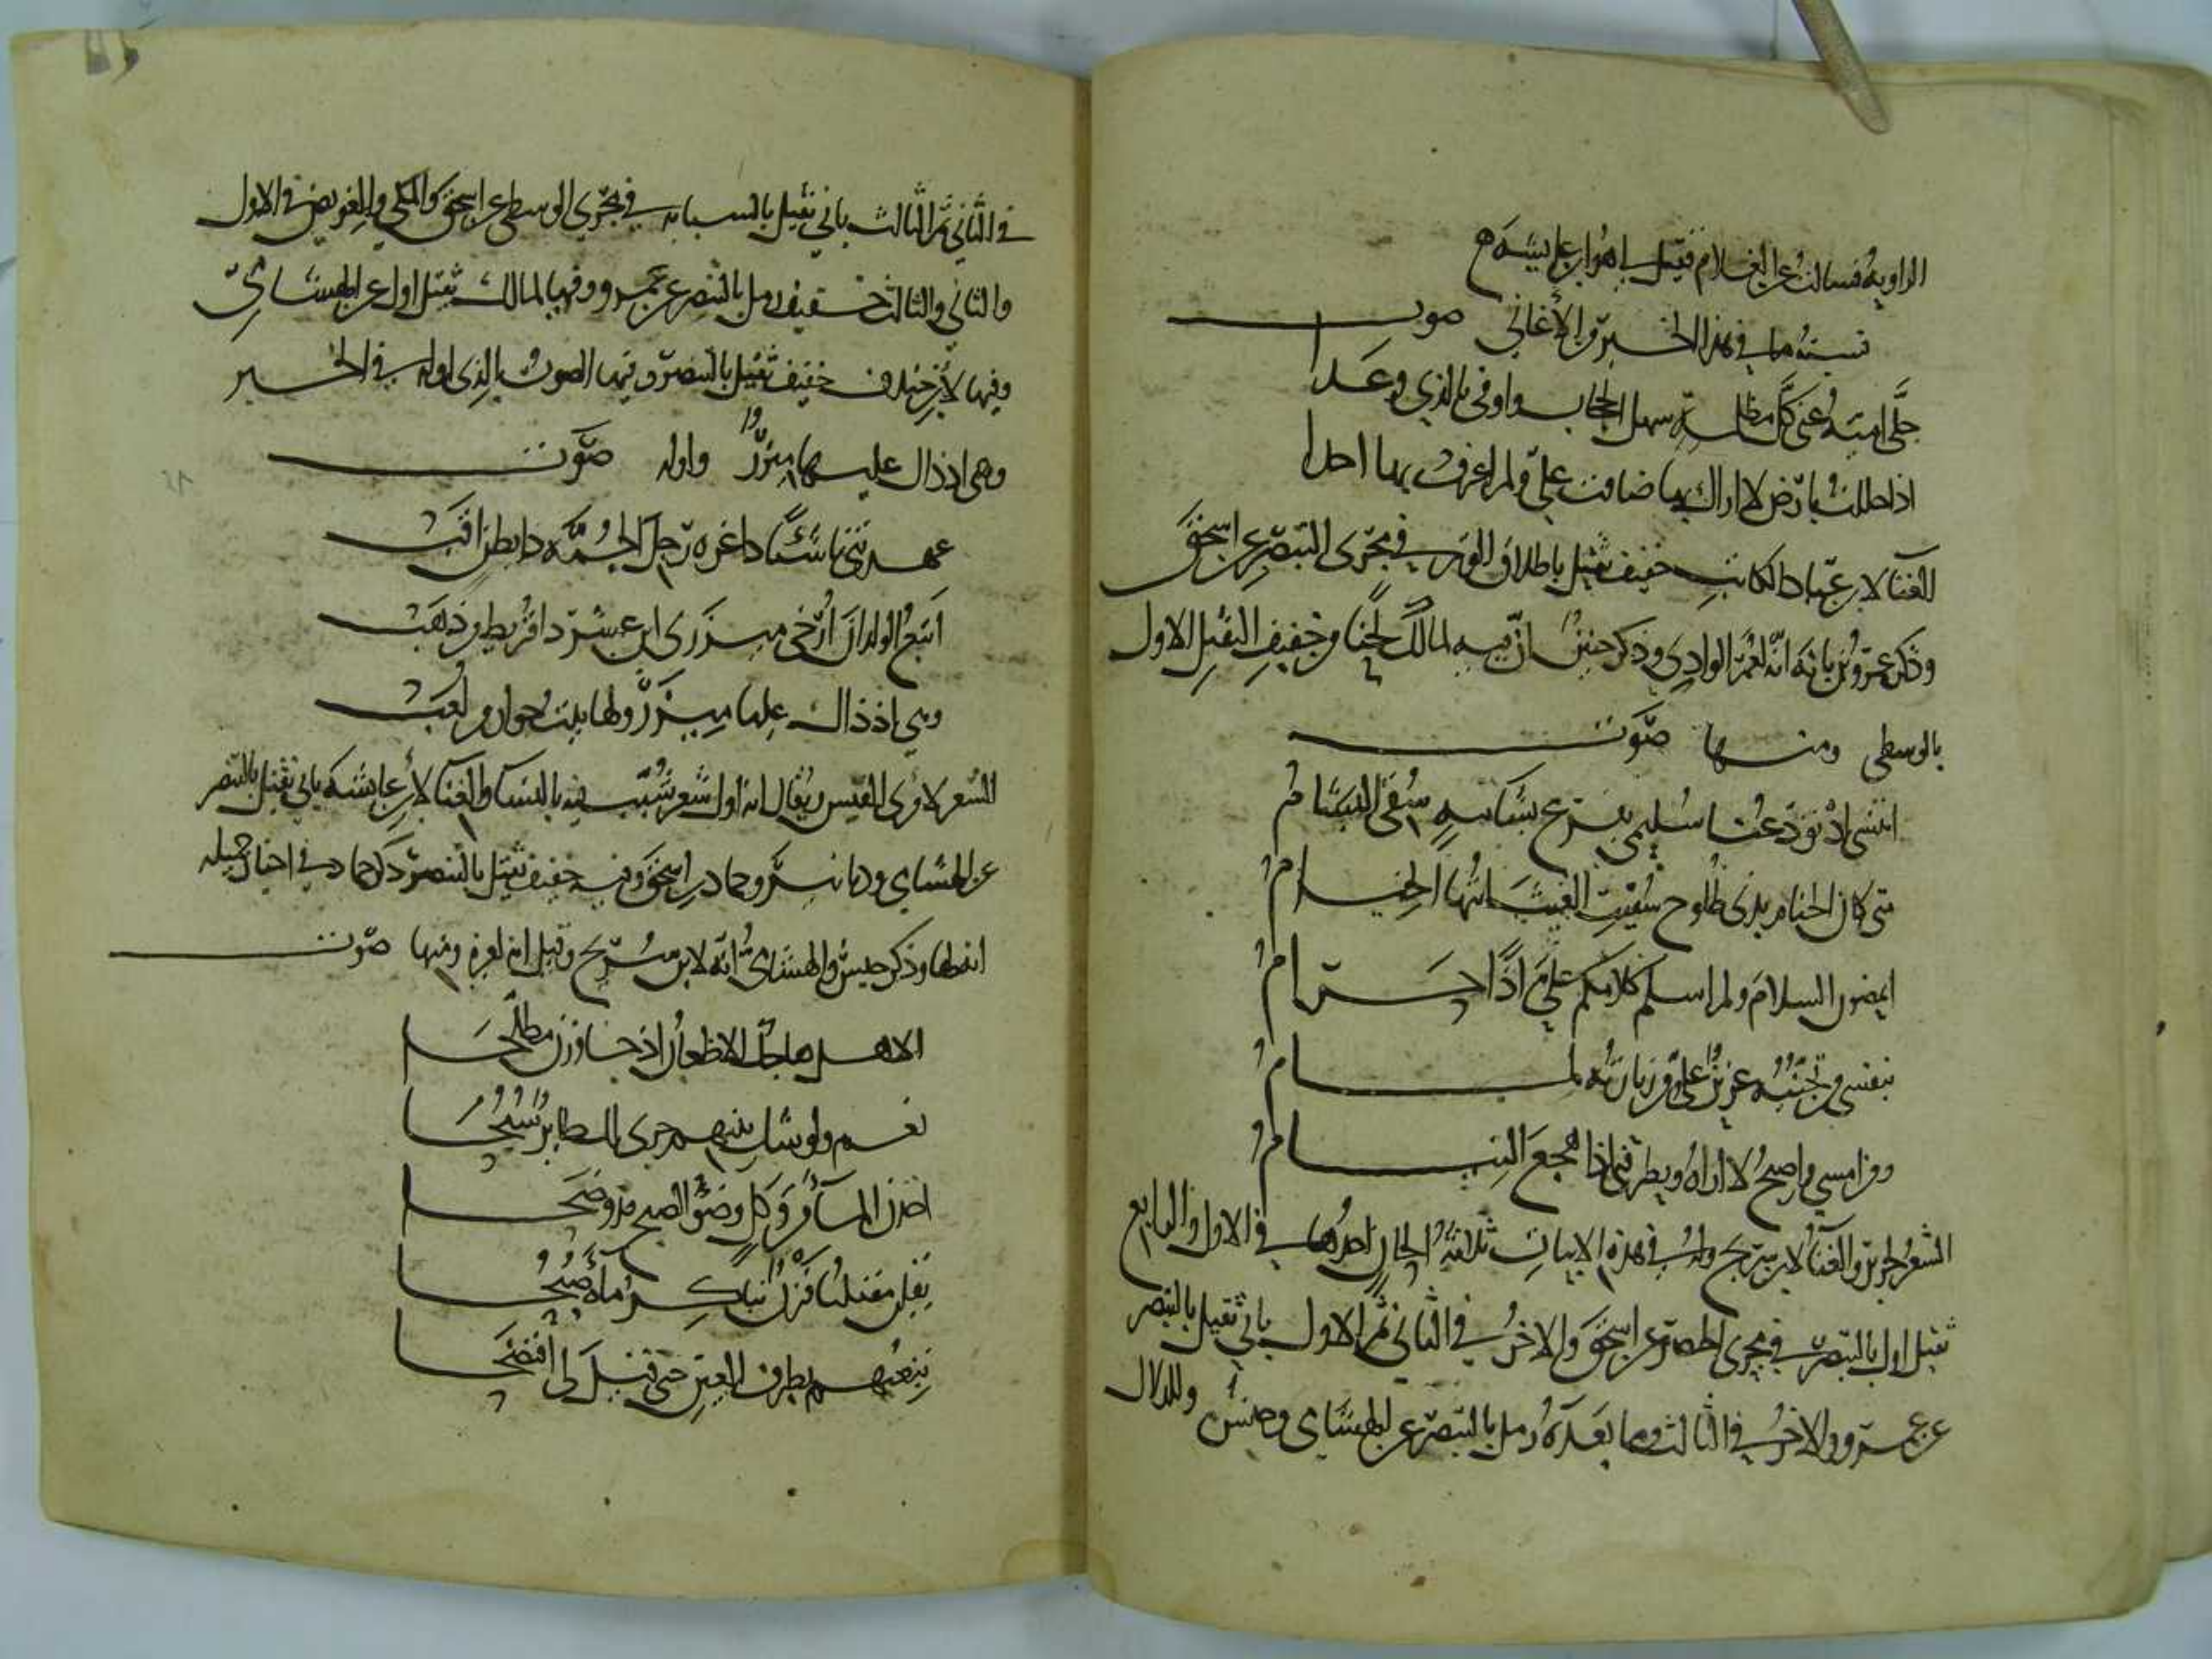 الراوية فسالت عن الغلام فقيل لي هو ابن عايشة ه
نسبة ما في هذا الخبر من الأغاني صوت
جلَّى اميّة عنّي كلَّ مظلمة سهل الحجاب واوفى بالذي وعدا
اذا حللت بارض لا اراك بها ضاقت عليّ ولم اعرف بها احدا
الغنا لابن عبّاد الكاتب خفيف ثقيل باطلاق الوتر في مجرى البنصر عن اسحق
وذكر عمرو بن بانة انّه لعمر الوادي وذكر حبش ان فيه لمالك لحنا من خفيف الثقيل الاول
بالوسطى ومنها صوت
اتنسى اذ تودعنا سليمى بفرع بشامة سقي البشام
متى كان الخيام بذي طلوح سقيت الغيث ايتها الخيام
اتمضون السلام ولم اسلم كلامكم علي اذًا حرام
بنفسي من تجنّبه عزيز عليّ ومن زيارته لمام
ومن امسي واصبح لا اراه ويطرقني اذا هجع النيام
الشعر لجرير والغنا لابن سريج وله في هذه الابيات ثلاثة الحان احدها في الاول والرابع
ثقيل اول بالبنصر في مجرى الخنصر عن اسحق والاخر في الثاني ثم الاول ثاني ثقيل بالبنصر
عن عمرو والاخر في الثالث وما بعده رمل بالبنصر عن الهشامي وحبش وللدلال
في الثاني ثم الثالث ثاني ثقيل بالسبابه في مجرى الوسطى عن اسحق والمكي وللغريض في الاول
والثاني والثالث خفيف رمل بالبنصر عن عمرو وفيها لمالك ثقيل اول عن الهشاميّ
وفيها لابن جندب خفيف ثقيل بالبنصر ومنها الصوت الذي اوله في الخبر
وهي اذ ذاك عليها ميزرٌ واوله صوت
عهدتني ناشئًا ذا غرة رجل الجمّه ذا بطن اقب
اتبع الولدان ارخي ميزري ابن عشر ذا قريط من ذهب
وهي اذ ذاك عليها ميزر ولها بيت جوار من لعب
الشعر لامرئ القيس ويقال انه اول شعر شبّب فيه بالنسا والغنا لابن عايشه ثاني ثقيل بالبنصر
عن الهشامي ودنانير وحماد بن اسحق وفيه خفيف ثقيل بالبنصر ذكر حماد في اخبار جميله
انه لها وذكر حبش والهشامي انه لابن سريج وقيل انه لغيره ومنها صوت
الا هل هاجك الاظعان اذ جاوزن مطلحا
نعم ولوشك بينهم جرى لك طاير سنحا
اخذن الماء من ركك وضو الصبح قد وضحا
يقلن مقيلنا قرن نباكر ماءه صبحا
تبعتهم بطرف العين حتى قيل لي افتضحا